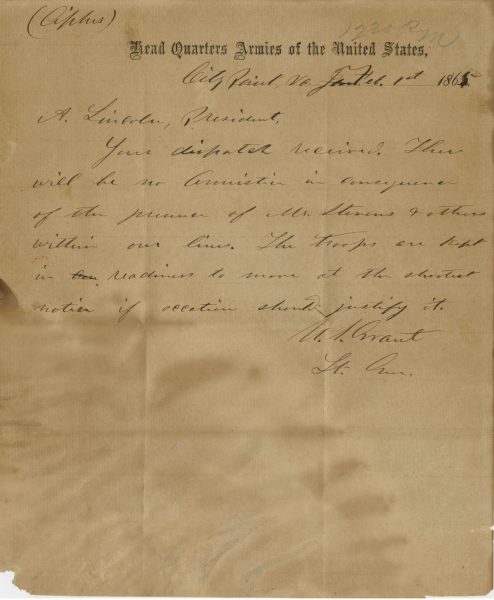 (Cipher)
12 30 P M
Head Quarters Armies of the United States,
City Point, Va. Jan Feb. 1st 1865
A. Lincoln, President,
Your dispatch received. There
will be no Armistice in consequence
of the presence of Mr. Stevens & others
within our lines. The troops are kept
in readiness to move at the shortest
notice if occation should justify it.
U. S. Grant
Lt. Gen.